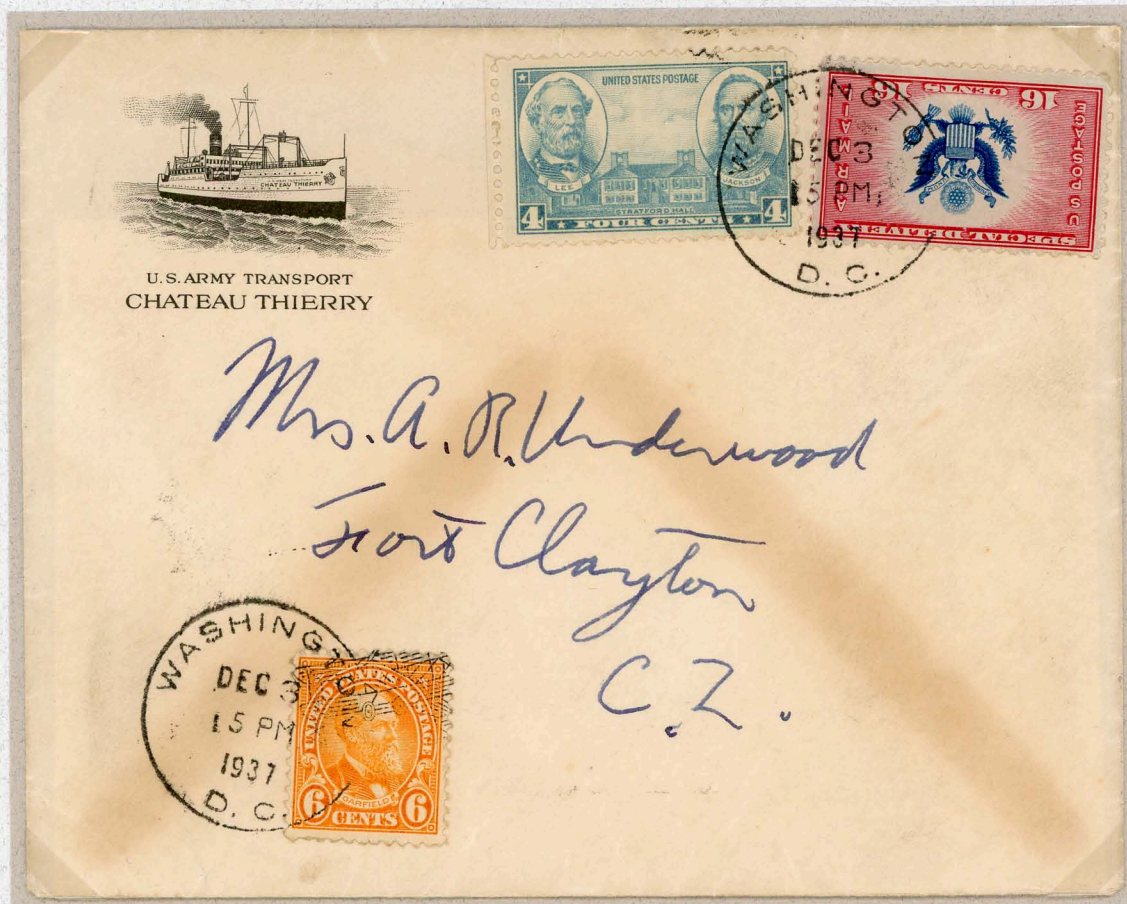 CHATEAU THIERRY
U.S. ARMY TRANSPORT
CHATEAU THIERRY
UNITED STATES POSTAGE
LEE
JACKSON
STRATFORD HALL
4 FOUR CENTS 4
16 CENTS 16
U S POSTAGE
AIR MAIL
SPECIAL DELIVERY
WASHINGTO
DEC 3
15 PM
1937
D. C.
Mrs. A. R. Underwood
Fort Clayton
C.Z.
WASHINGTON
DEC 3
15 PM
1937
D. C.
UNITED STATES POSTAGE
GARFIELD
6 CENTS 6